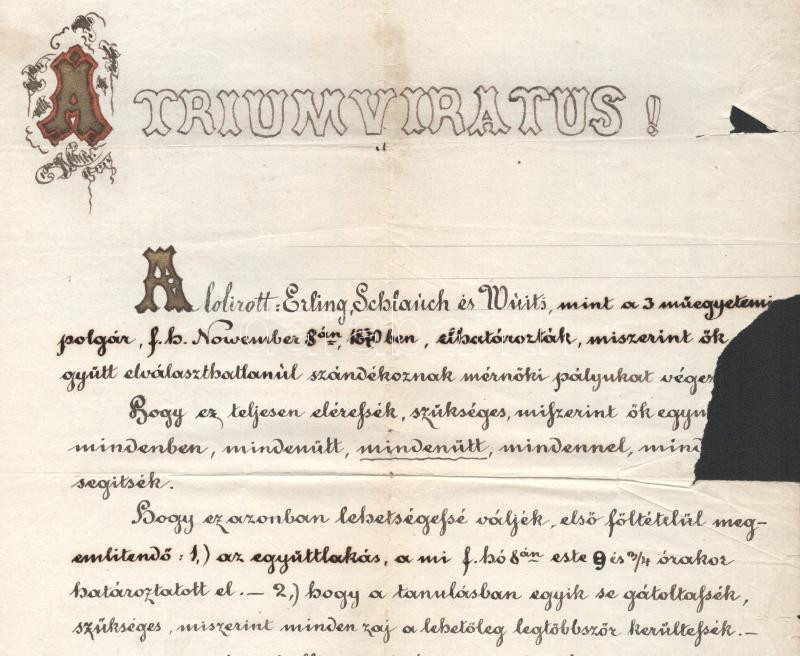 A TRIUMVIRATUS!
Alolirott: Erling, Schlauch és Wüits, mint a 3 műegyetemi
polgár, f. h. November 8án, 1870ben, elhatározták, miszerint ők
gyütt elválaszthatlanúl szándékoznak mérnöki pályukat végez
Hogy ez teljesen eléressék, szükséges, miszerint ők egym
mindenben, mindenütt, mindenütt, mindennel, mind
segitsék.
Hogy ez azonban lehetségessé váljék, első föltételül meg-
emlitendő: 1,) az együttlakás, a mi f. hó 8án este 9 és 3/4 órakor
határoztatott el. — 2,) hogy a tanulásban egyik se gátoltassék,
szükséges, miszerint minden zaj a lehetőleg legtöbbször kerültessék. —